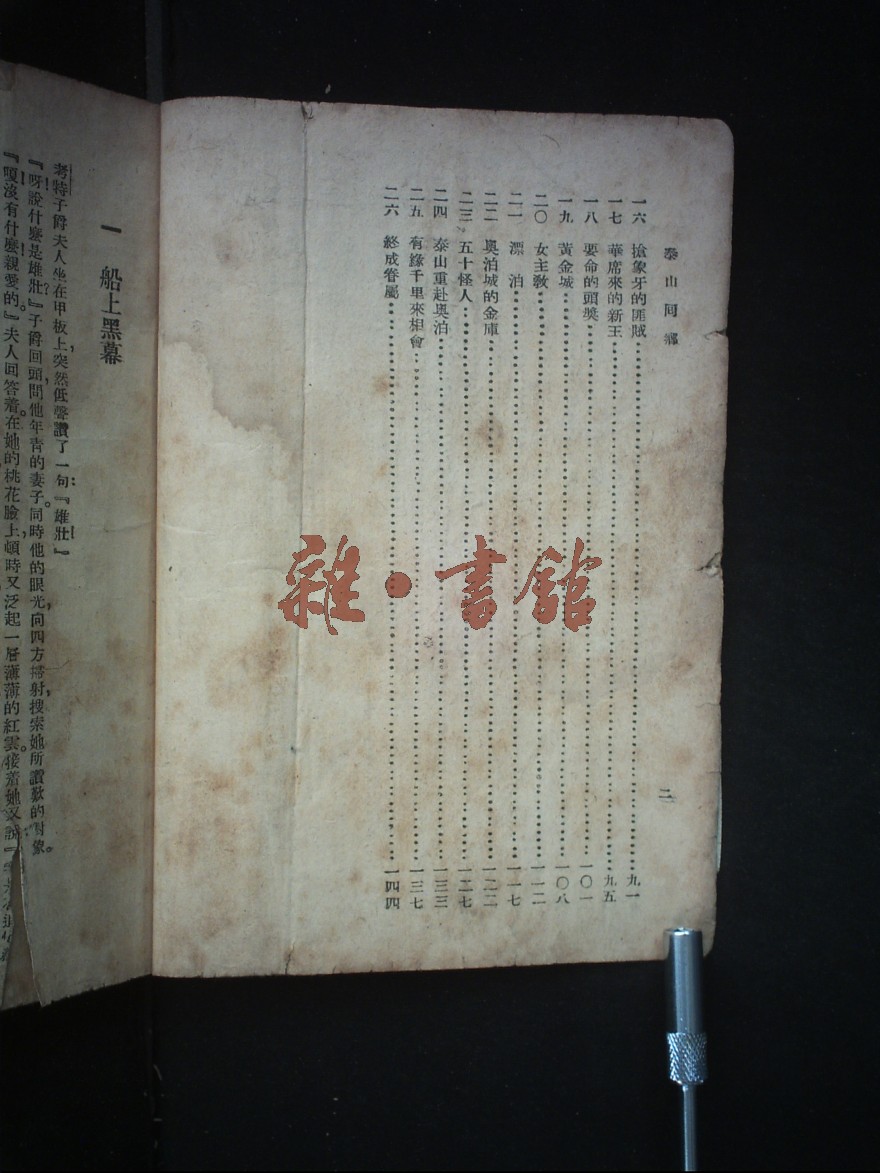 泰山回鄉
二
一六 搶象牙的匪賊 九一
一七 華席來的新王 九五
一八 要命的頭獎 一〇一
一九 黃金城 一〇八
二〇 女主教 一一二
二一 漂泊 一一七
二二 奧泊城的金庫 一二二
二三 五十怪人 一二七
二四 泰山重赴奧泊 一三三
二五 有緣千里來相會 一三七
二六 終成眷屬 一四四
一 船上黑幕
考特子爵夫人坐在甲板上，突然低聲讚了一句：『雄壯！』
『呀！說什麼是雄壯？』子爵回頭問他年青的妻子，同時他的眼光，向四方搜索她所讚歎的對象。
『嗄！沒有什麼，親愛的。』夫人回答着。在她的桃花臉上，頓時又泛起一層薄薄的紅雲。接着她又說：『
雜·書館